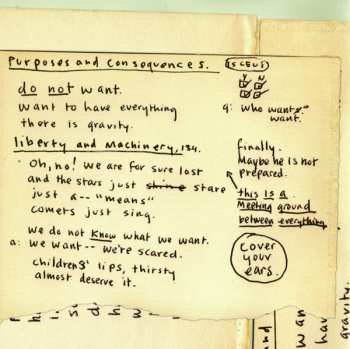 Purposes and Consequences.
do not want.
want to have everything
there is gravity.
liberty and machinery, 134.
Oh, no! we are for sure lost
and the stars just shine stare
just a -- "means"
comets just sing.
we do not know what we want.
a: we want -- we're scared.
childrens' lips, thirsty
almost deserve it.
Y N
q: who wants "
want."
finally.
Maybe he is not
prepared.
this is a
meeting ground
between everything
cover
your
ears.
and